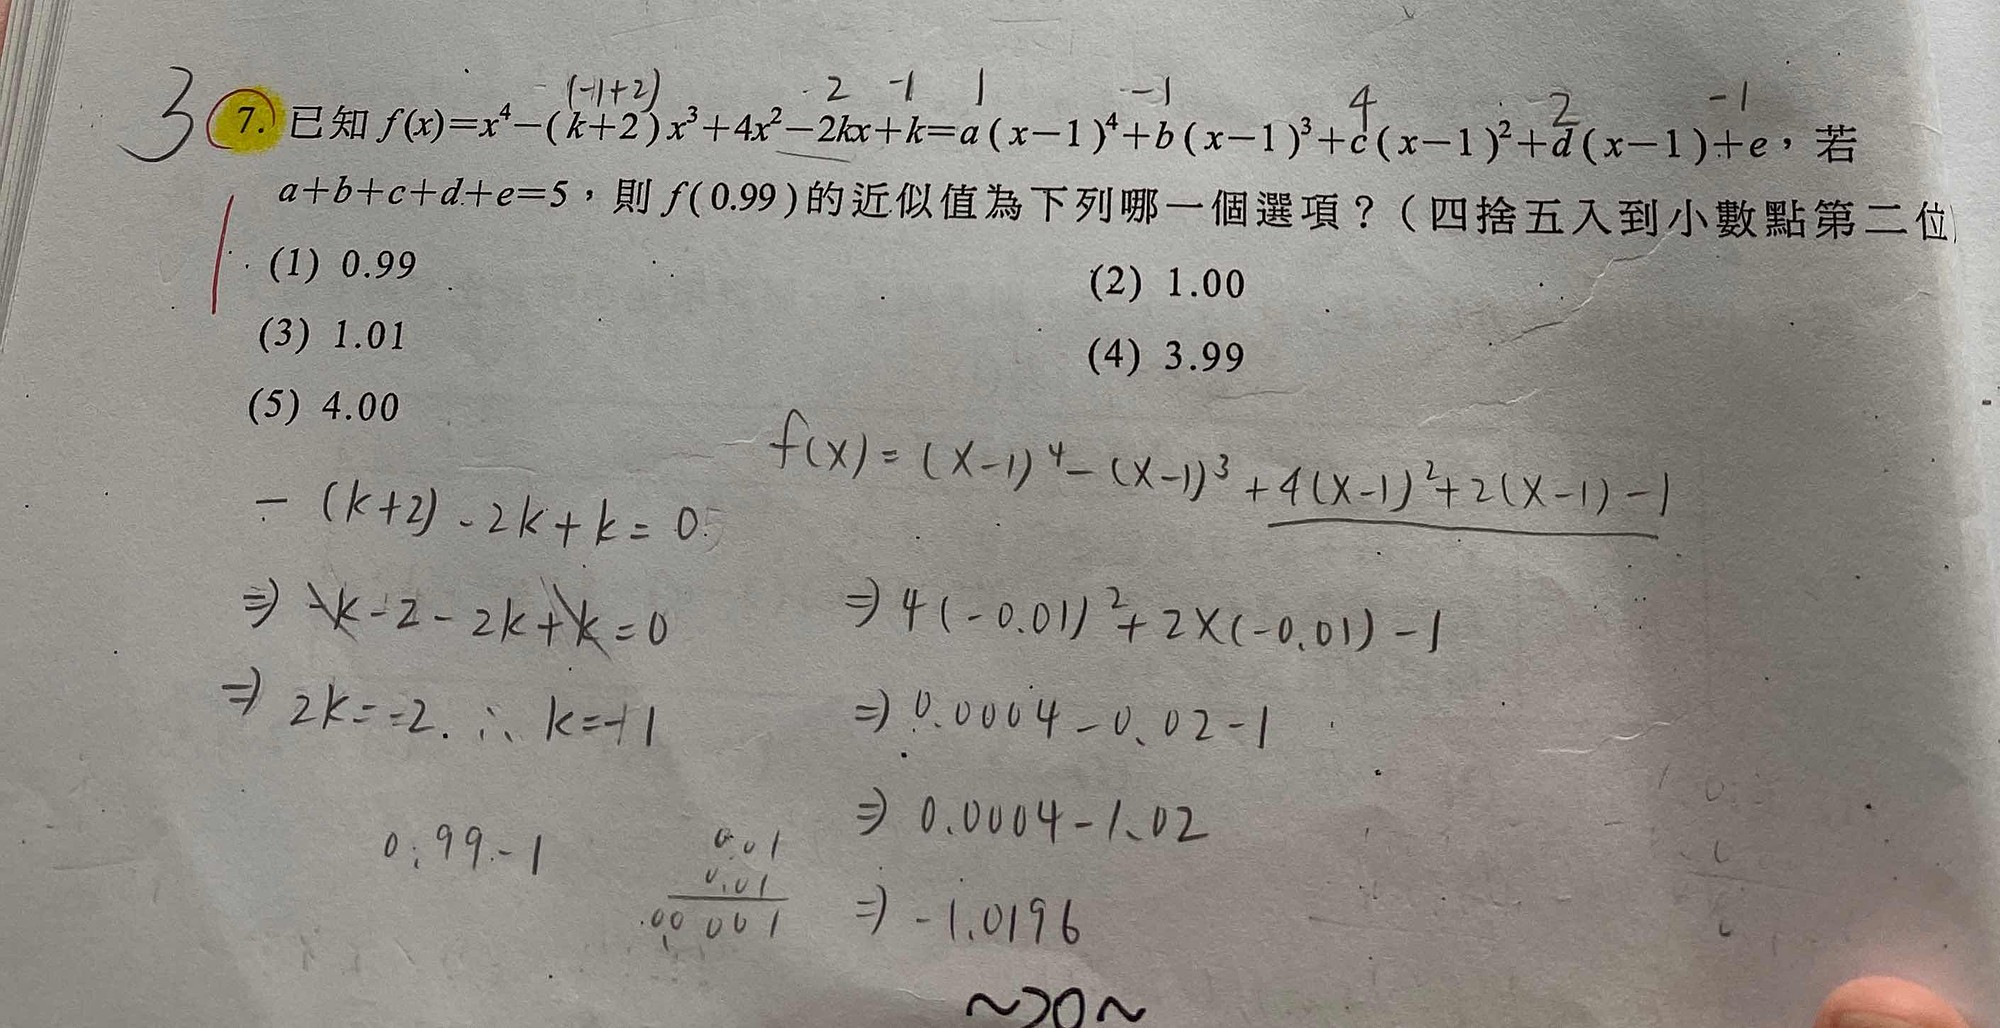 3
(-1+2) 2 -1 1 -1 4 2 -1
7. 已知 f(x)=x⁴−(k+2)x³+4x²−2kx+k=a(x−1)⁴+b(x−1)³+c(x−1)²+d(x−1)+e，若
a+b+c+d+e=5，則 f(0.99)的近似值為下列哪一個選項？（四捨五入到小數點第二位）
(1) 0.99
(2) 1.00
(3) 1.01
(4) 3.99
(5) 4.00
f(x)=(x-1)⁴-(x-1)³+4(x-1)²+2(x-1)-1
-(k+2)-2k+k=0
⇒ -k-2-2k+k=0
⇒ 4(-0.01)²+2×(-0.01)-1
⇒ 2k=-2. ∴ k=-1
⇒ 0.0004-0.02-1
⇒ 0.0004-1.02
0.99-1
0.01
0.01
⇒ -1.0196
~20~